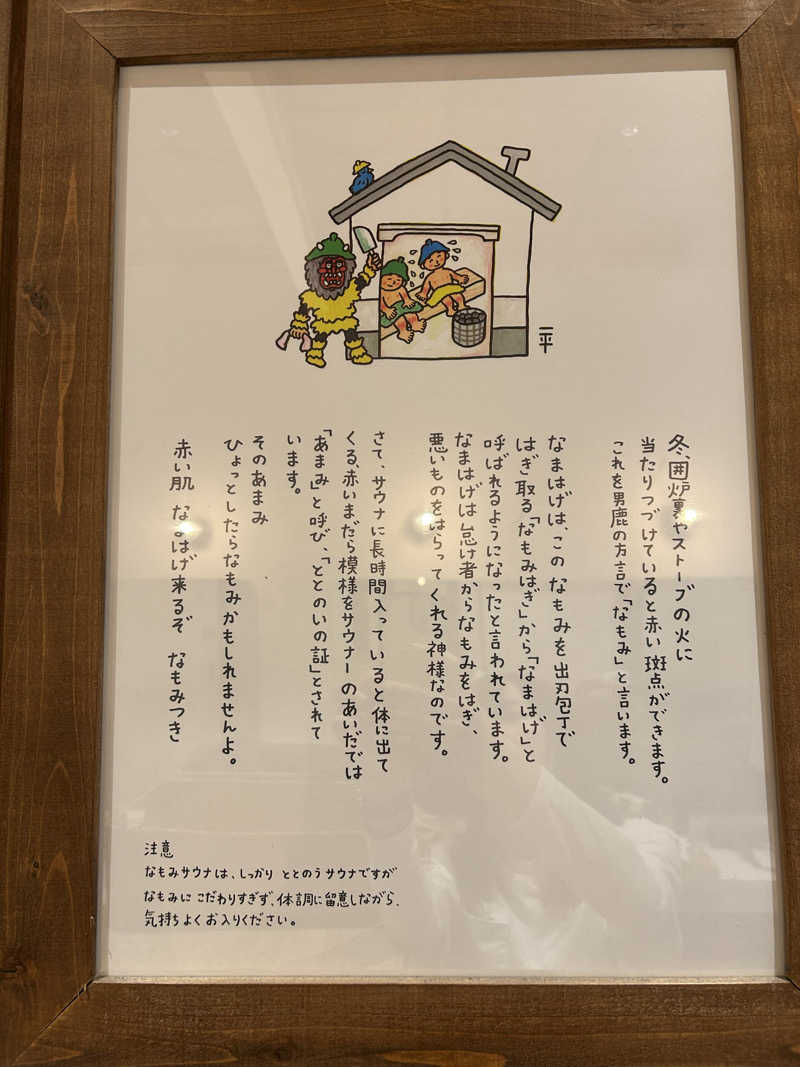 一平
冬、囲炉裏やストーブの火に
当たりつづけていると赤い斑点ができます。
これを男鹿の方言で「なもみ」と言います。
なまはげは、このなもみを出刃包丁で
はぎ取る「なもみはぎ」から「なまはげ」と
呼ばれるようになったと言われています。
なまはげは怠け者からなもみをはぎ、
悪いものをはらってくれる神様なのです。
さて、サウナに長時間入っていると体に出て
くる、赤いまだら模様をサウナーのあいだでは
「あまみ」と呼び、「ととのいの証」とされて
います。
そのあまみ
ひょっとしたらなもみかもしれませんよ。
赤い肌 なまはげ来るぞ なもみつき
注意
なもみサウナは、しっかり ととのうサウナですが
なもみに こだわりすぎず、体調に留意しながら、
気持ちよくお入りください。